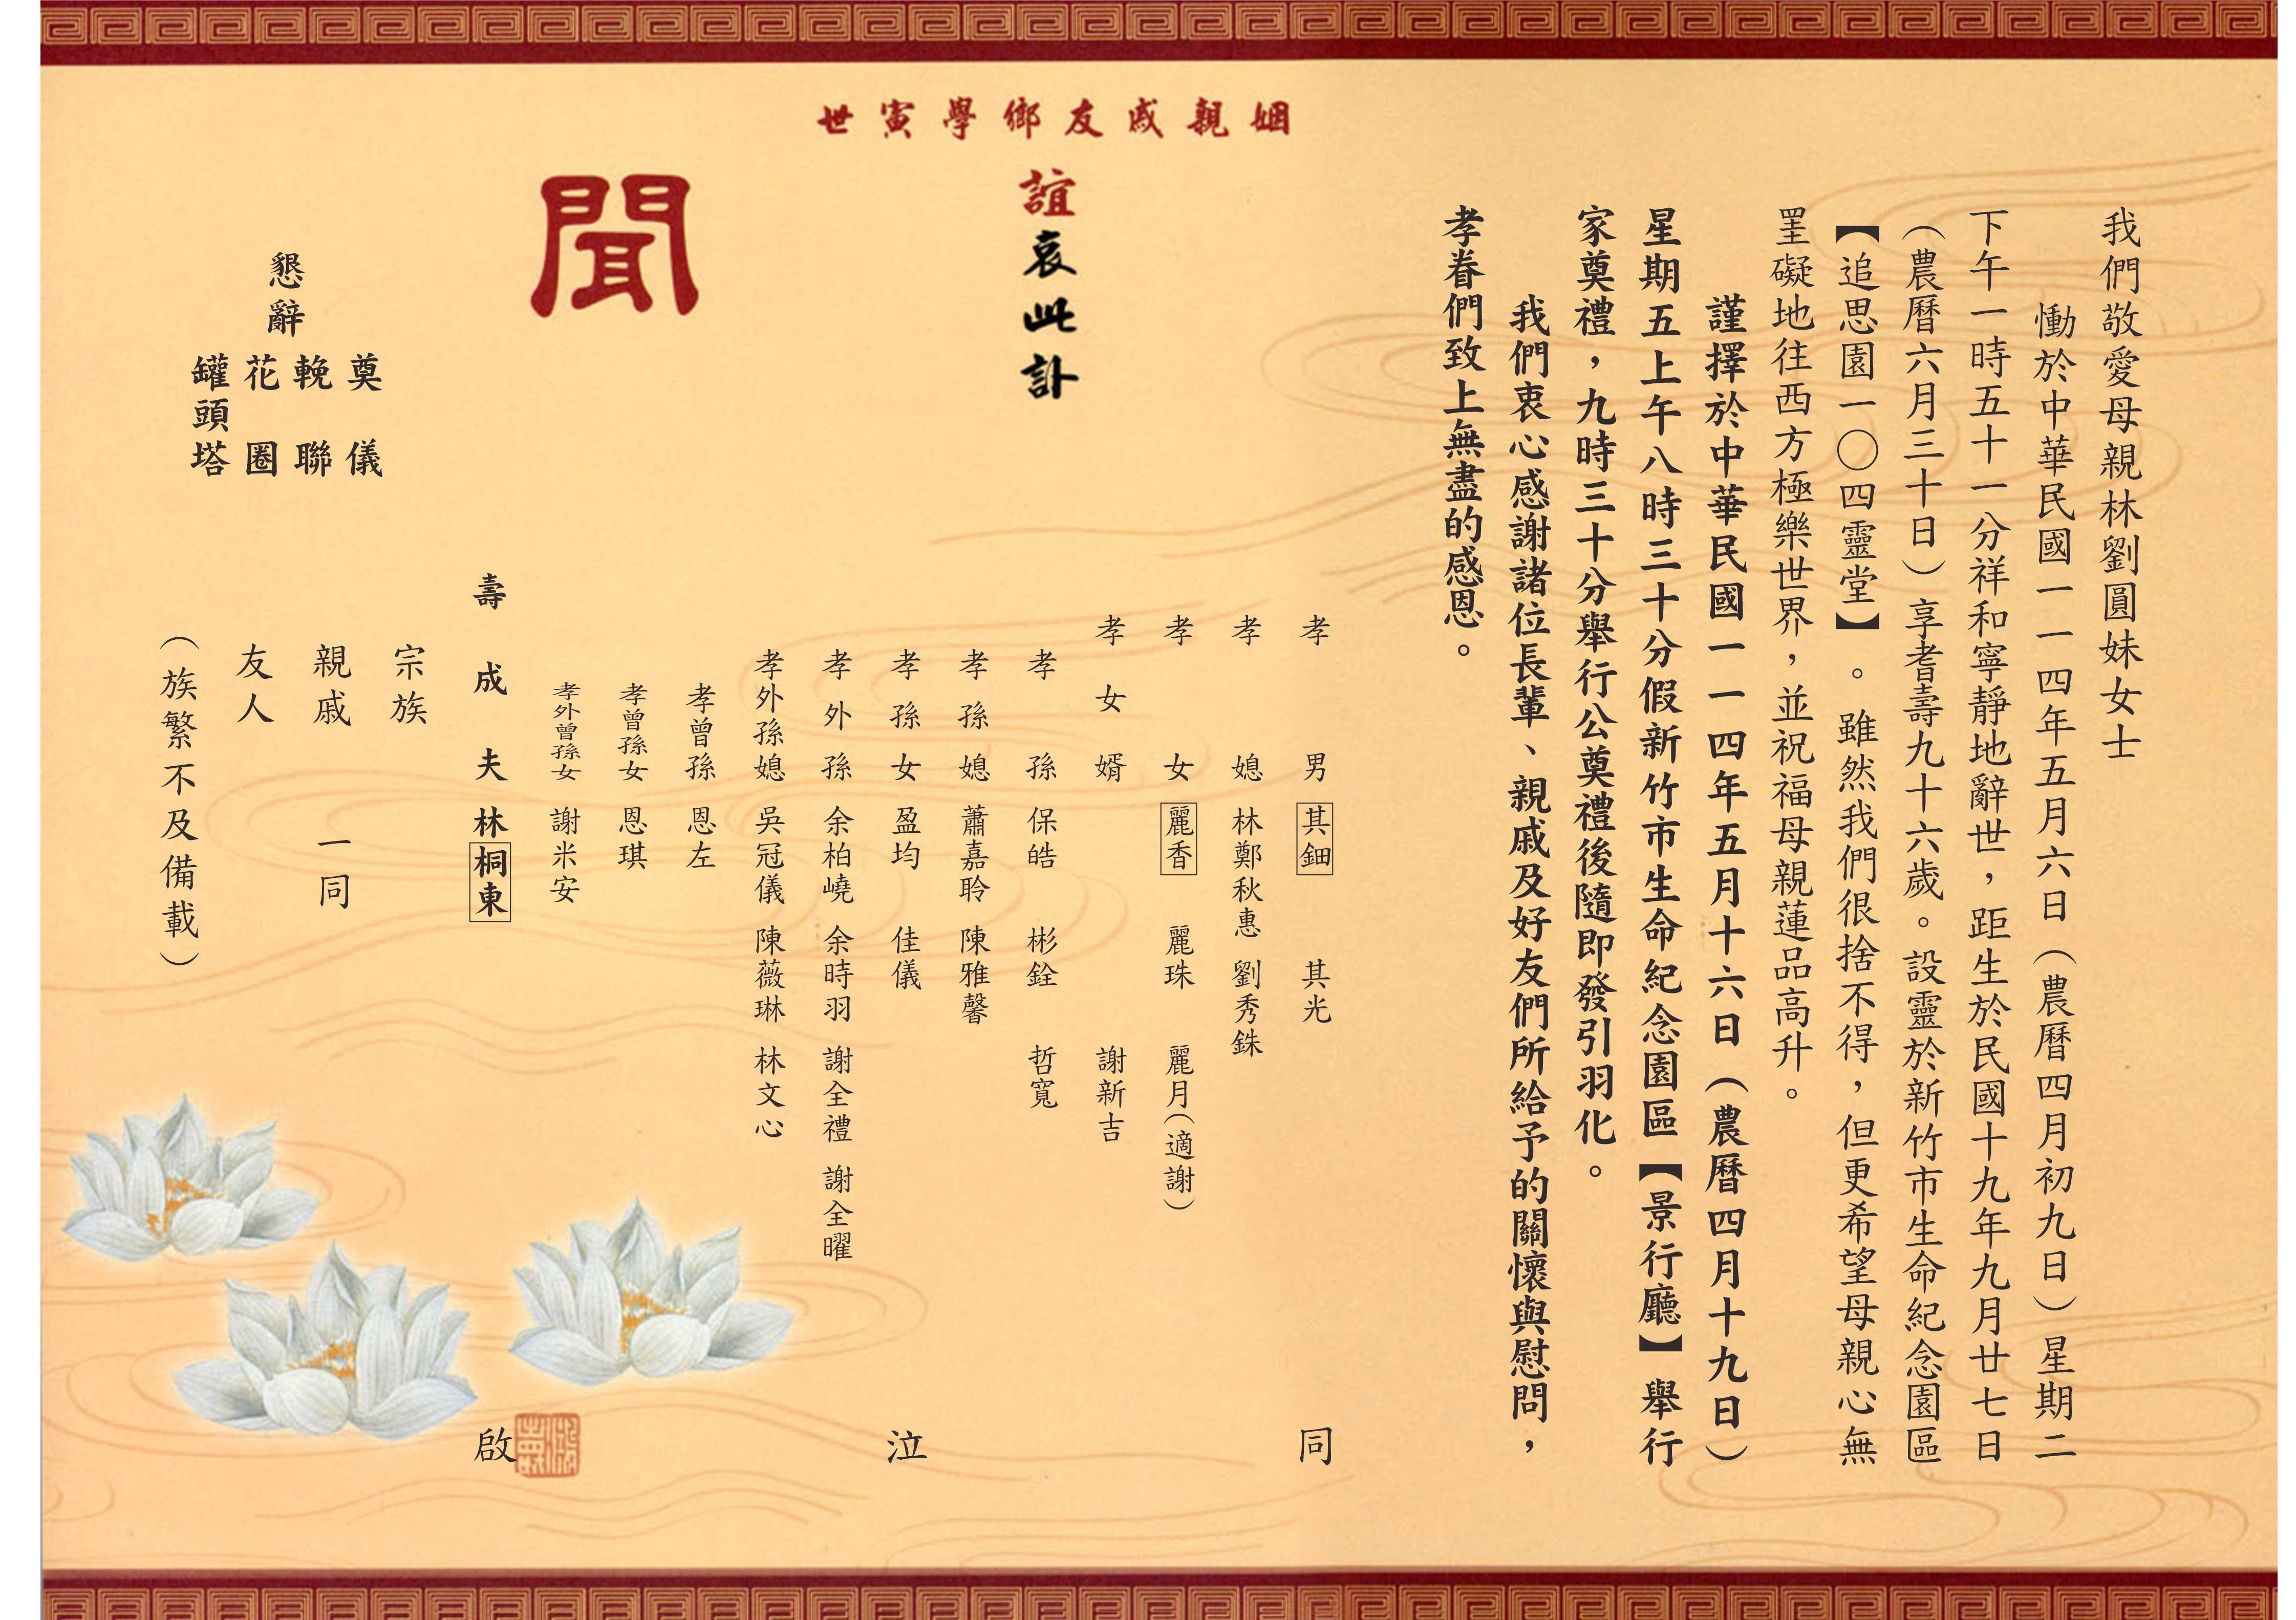 我們敬愛母親林劉圓妹女士
慟於中華民國一一四年五月六日（農曆四月初九日）星期二
下午一時五十一分祥和寧靜地辭世，距生於民國十九年九月廿七日
（農曆六月三十日）享耆壽九十六歲。設靈於新竹市生命紀念園區
【追思園一〇四靈堂】。雖然我們很捨不得，但更希望母親心無
罣礙地往西方極樂世界，並祝福母親蓮品高升。
謹擇於中華民國一一四年五月十六日（農曆四月十九日）
星期五上午八時三十分假新竹市生命紀念園區【景行廳】舉行
家奠禮，九時三十分舉行公奠禮後隨即發引羽化。
我們衷心感謝諸位長輩、親戚及好友們所給予的關懷與慰問，
孝眷們致上無盡的感恩。
姻親戚友鄉學寅世
誼哀此訃
聞
孝男 其鈿 其光 同
孝媳 林鄭秋惠 劉秀銖
孝女 麗香 麗珠 麗月（適謝）
孝女婿 謝新吉
孝孫 保皓 彬銓 哲寬
孝孫媳 蕭嘉聆 陳雅馨
孝孫女 盈均 佳儀 泣
孝外孫 余柏嶢 余時羽 謝全禮 謝全曜
孝外孫媳 吳冠儀 陳薇琳 林文心
孝曾孫 恩左
孝曾孫女 恩琪
孝外曾孫女 謝米安
壽成夫 林桐東 啟
宗族
親戚 一同
友人
（族繁不及備載）
懇辭
奠儀
輓聯
花圈
罐頭塔